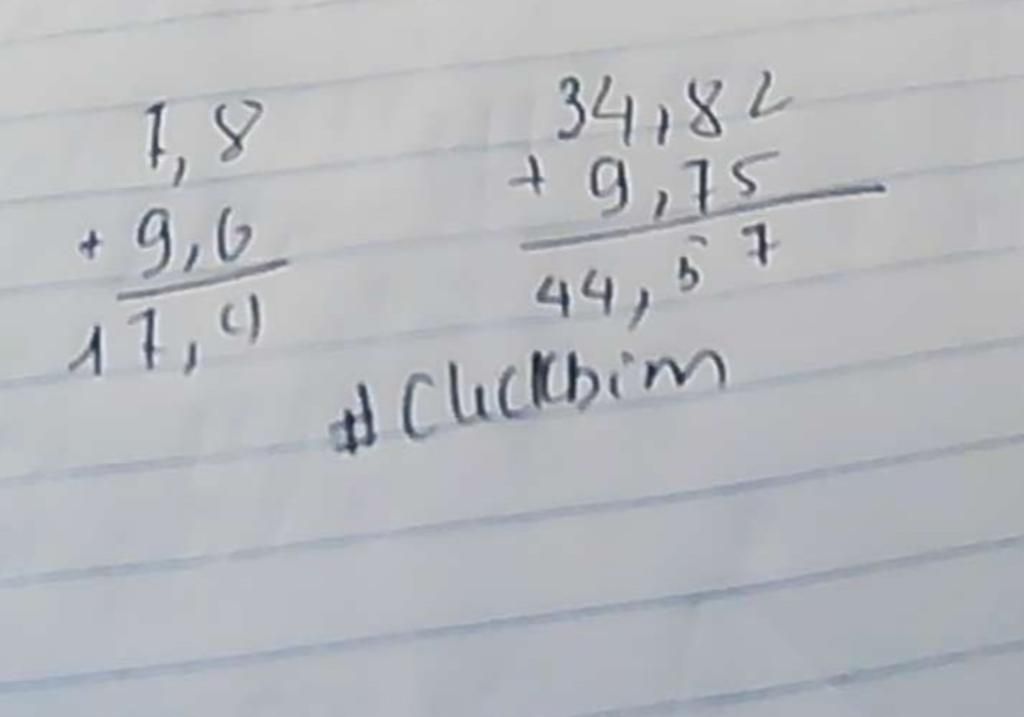 7,8
+ 9,6
17,4
34,82
+ 9,75
44,57
#Clickbim